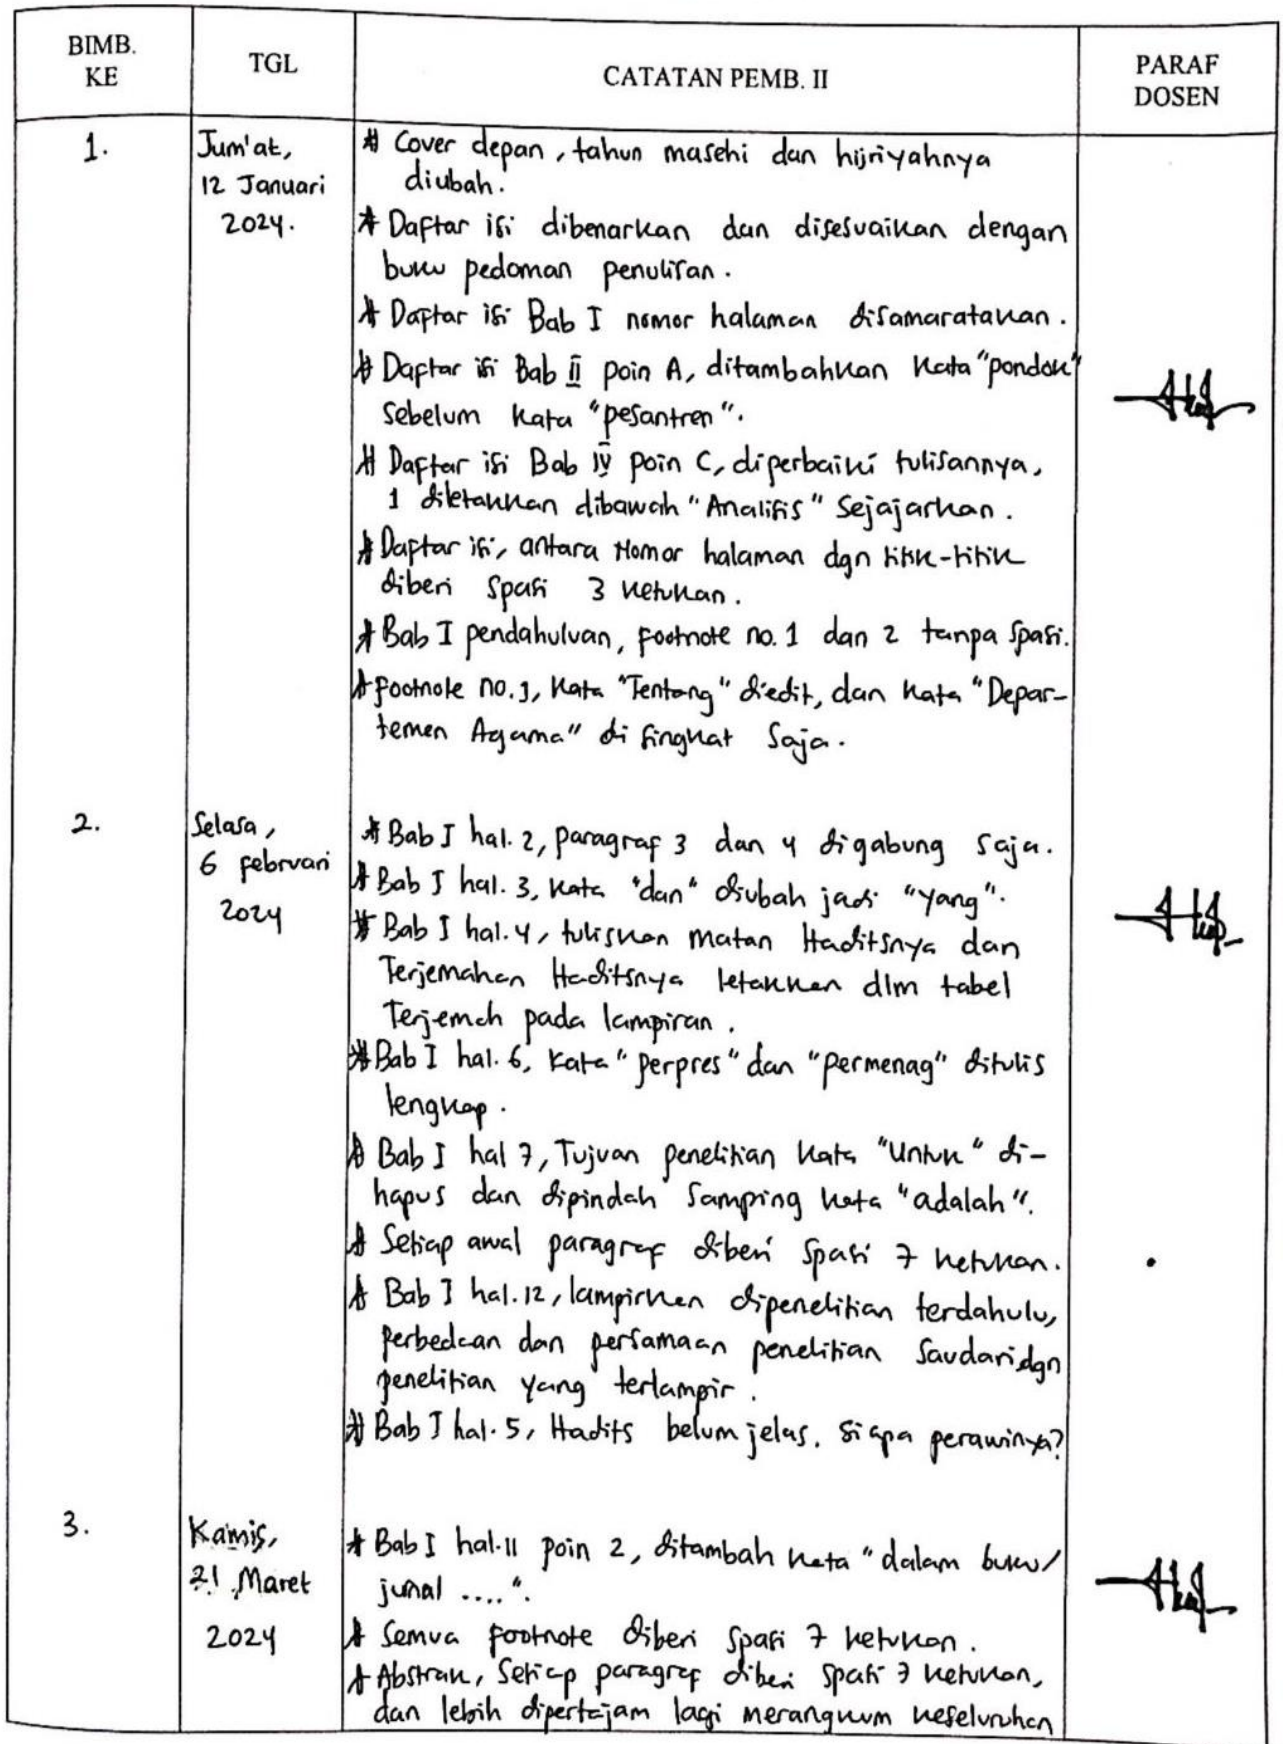 BIMB. KE
TGL
CATATAN PEMB. II
PARAF DOSEN
1.
Jum'at,
12 Januari
2024.
# Cover depan, tahun masehi dan hijriyahnya
diubah.
# Daftar isi dibenarkan dan disesuaikan dengan
buku pedoman penulisan.
# Daftar isi Bab I nomor halaman disamaratakan.
# Daftar isi Bab II poin A, ditambahkan kata "pondok"
sebelum kata "pesantren".
# Daftar isi Bab IV poin C, diperbaiki tulisannya,
1 diletakkan dibawah "Analisis" sejajarkan.
# Daftar isi, antara Nomor halaman dgn titik-titik
diberi spasi 3 ketukan.
# Bab I pendahuluan, footnote no. 1 dan 2 tanpa spasi.
# footnote no. 3, kata "Tentang" diedit, dan kata "Depar-
temen Agama" di singkat saja.
2.
Selasa,
6 februari
2024
# Bab I hal. 2, paragraf 3 dan 4 digabung saja.
# Bab I hal. 3, kata "dan" diubah jadi "yang".
# Bab I hal. 4, tuliskan matan Haditsnya dan
Terjemahan Haditsnya letakkan dlm tabel
Terjemah pada lampiran.
# Bab I hal. 6, kata "perpres" dan "permenag" ditulis
lengkap.
# Bab I hal 7, Tujuan penelitian kata "Untuk" di-
hapus dan dipindah samping kata "adalah".
# Setiap awal paragraf diberi spasi 7 ketukan.
# Bab I hal. 12, lampirkan dipenelitian terdahulu,
perbedaan dan persamaan penelitian saudari dgn
penelitian yang terlampir.
# Bab I hal. 5, Hadits belum jelas. siapa perawinya?
3.
Kamis,
21 Maret
2024
# Bab I hal. 11 poin 2, ditambah kata "dalam buku/
jurnal ....".
# Semua footnote diberi spasi 7 ketukan.
# Abstrak, setiap paragraf diberi spasi 7 ketukan,
dan lebih dipertajam lagi merangkum keseluruhan